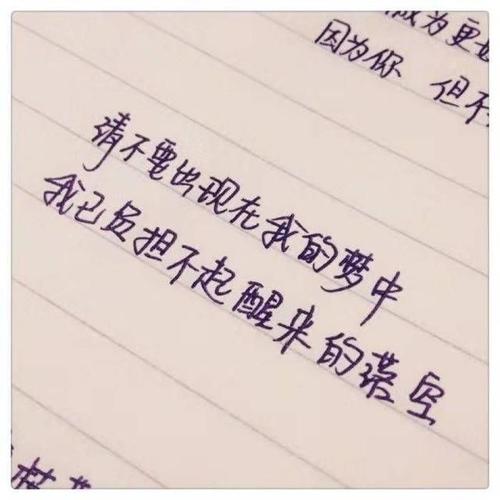 成为更
因为你 但不
请不要出现在我的梦中
我已负担不起醒来的落空